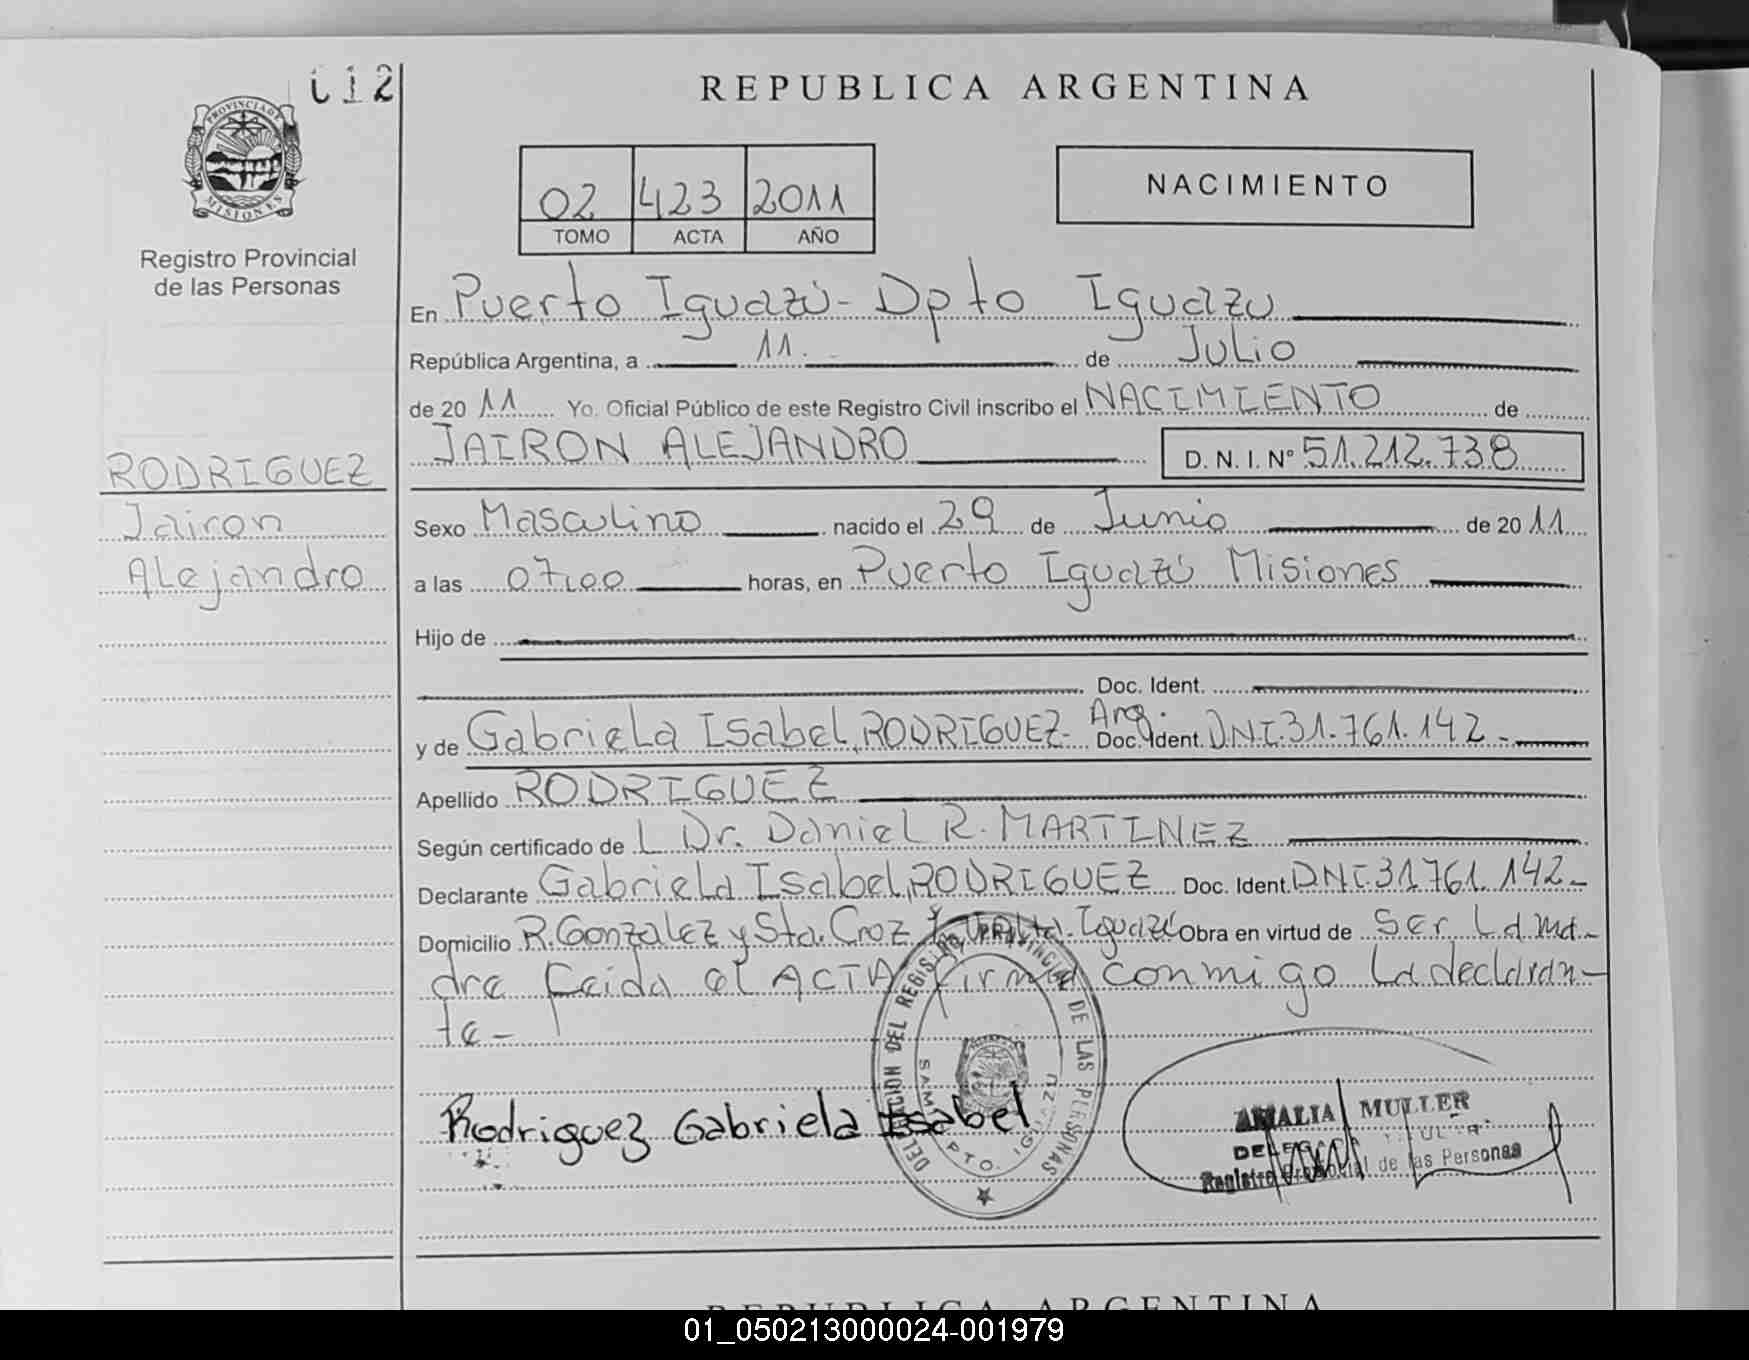 012
REPUBLICA ARGENTINA
PROVINCIA DE
MISIONES
Registro Provincial
de las Personas
02 423 2011
TOMO ACTA AÑO
NACIMIENTO
En Puerto Iguazú - Dpto Iguazu
República Argentina, a 11. de Julio
de 2011 Yo. Oficial Público de este Registro Civil inscribo el NACIMIENTO de
JAIRON ALEJANDRO D.N.I. Nº 51.212.738
RODRIGUEZ
Jairon
Alejandro
Sexo Masculino nacido el 29 de Junio de 2011
a las 07,00 horas, en Puerto Iguazú Misiones
Hijo de
Doc. Ident.
y de Gabriela Isabel, RODRIGUEZ- Arg. Doc. Ident. DNI.31.761.142-
Apellido RODRIGUEZ
Según certificado de L Dr. Daniel R. MARTINEZ
Declarante Gabriela Isabel, RODRIGUEZ Doc. Ident. DNI.31761.142-
Domicilio R. Gonzalez y Sta. Croz Iguazú Obra en virtud de Ser La ma-
dre Leida el ACTA firma conmigo La declaran-
te-
DELEGACION DEL REGISTRO PROVINCIAL DE LAS PERSONAS
DPTO. IGUAZU
Rodriguez Gabriela Isabel
AMALIA MULLER
DELEGADA TITULAR
Registro Provincial de las Personas
REPUBLICA ARGENTINA
01_050213000024-001979